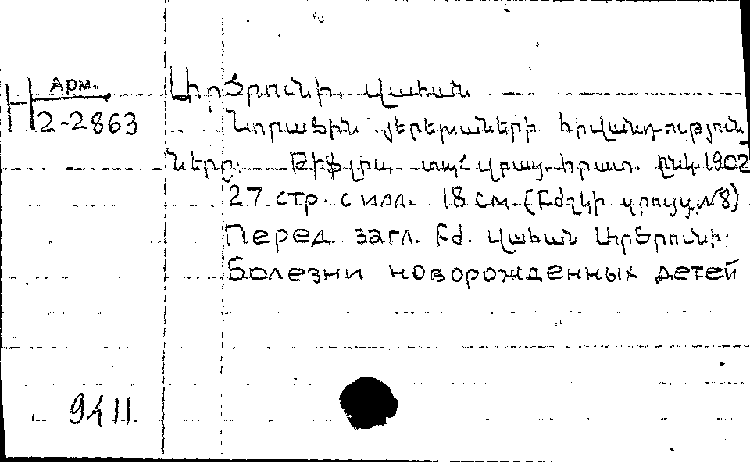 Арм.
Н 2-2863
Արծրունի, Վահան
Նորածին երեխաների հիվանդություն
ները. Թիֆլիս, տպ. Վրաց. հրատ. ընկ. 1902
27 стр. с илл. 18 см. (Բժշկի զրույց. №8)
Перед загл. Բժ. Վահան Արծրունի.
Болезни новорожденных детей
9411.